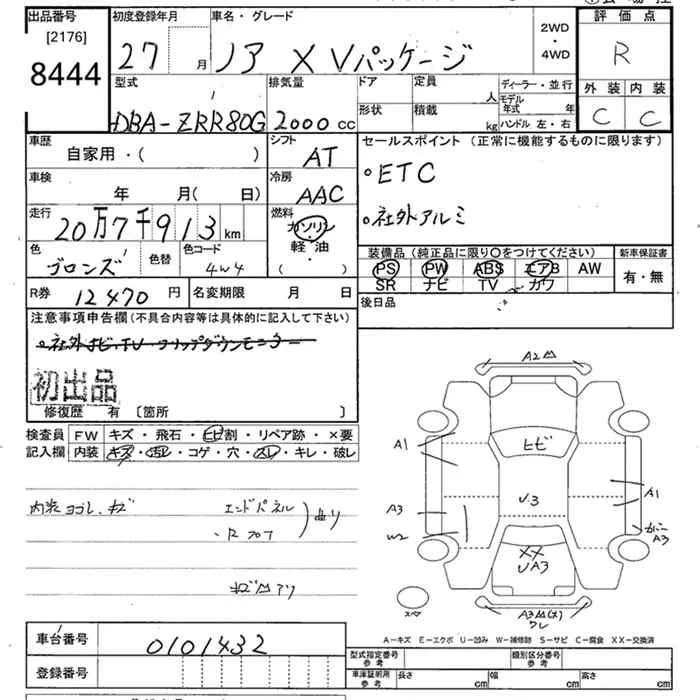 出品番号
[2176]
8444
初度登録年月
27 月
車名・グレード
ノア X Vパッケージ
2WD
・
4WD
評価点
R
外装 内装
C C
型式
DBA-ZRR80G
排気量
2000 cc
ドア
形状
定員 人
積載 kg
ディーラー・並行
モデル年式 年
ハンドル 左・右
車歴
自家用・( )
シフト
AT
セールスポイント (正常に機能するものに限ります)
・ETC
・社外アルミ
車検
年 月( 日)
冷房
AAC
走行
20万7千913km
燃料
ガソリン
軽・油
( )
色
ブロンズ
色替
色コード
4W4
装備品 (純正品に限り○をつけてください)
PS PW ABS エアB AW
SR ナビ TV カワ
新車保証書
有・無
R券 12470 円
名変期限 月 日
後日品
注意事項申告欄 (不具合内容等は具体的に記入して下さい)
・社外ナビ、TV・フリップダウンモニター
初出品
修復歴 有 〔箇所 〕
検査員 FW キズ・飛石・ヒビ割・リペア跡・×要
記入欄 内装 キズ・汚レ・コゲ・穴・スレ・キレ・破レ
内装ヨゴレ、キズ
エンドパネル
・Rフロア
曲り
A2
ヒビ
A1
A1
A3
W2
U3
A3
XX
UA3
スペ
A3
ワレ
A-キズ E-エクボ U-凹み W-補修跡 S-サビ C-腐食 XX-交換済
車台番号 0101432
登録番号
型式指定番号
参考
類別区分番号
参考
車庫証明用
参考
長さ cm
幅 cm
高さ cm